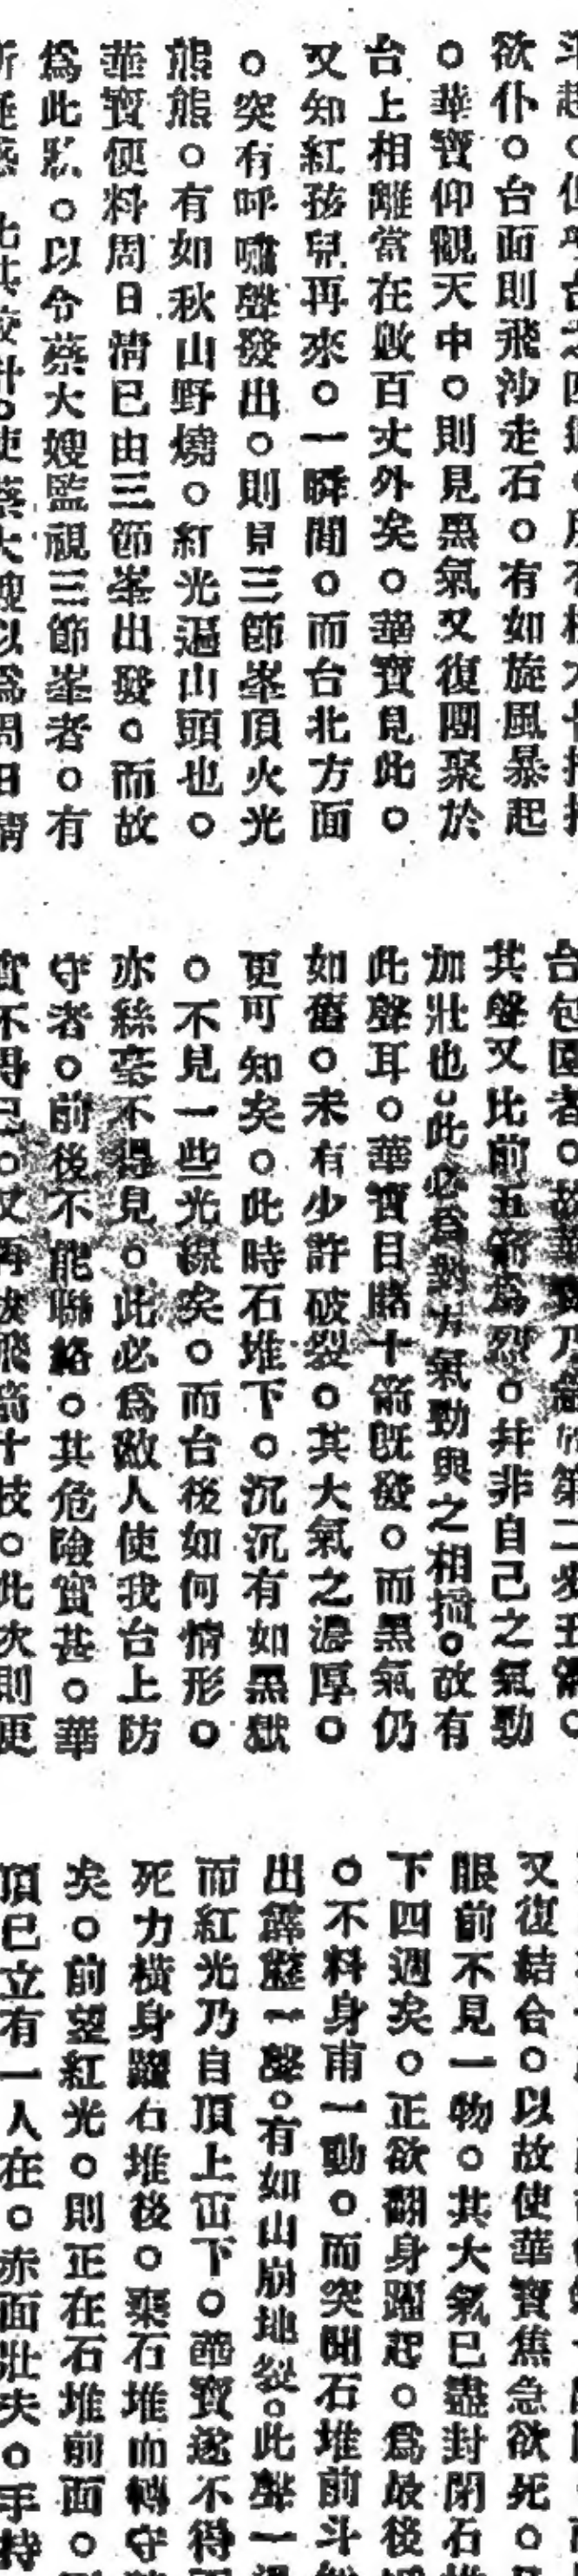 欲仆。台面則飛沙走石。有如旋風暴起
。華寶仰觀天中。則見黑氣又復團聚於
台上相離當在數百丈外矣。華寶見此。
又知紅孩兒再來。一瞬間。而台北方面
。突有呼嘯聲發出。則見三節峯頂火光
熊熊。有如秋山野燒。紅光逼山頭也。
華寶便料周日清已由三節峯出發。而故
爲此。以令蔡大嫂監視三節峯者。有
台包圍者。第二
其聲又比前五箭爲烈。幷非自己之氣勁
加壯也。此必爲對方氣勁與之相撞。故有
此聲耳。華寶目睹十箭旣發。而黑氣仍
如舊。未有少許破裂。其大氣之濃厚。
更可知矣。此時石堆下。沉沉有如黑獄
。不見一些光線矣。而台後如何情形。
亦絲毫不得見。此必爲敵人使我台上防
守者。前後不能聯絡。其危險實甚。華
實不得已。又再放飛箭十枝。此次則更
又復結合。以故使華寶焦急欲死。
眼前不見一物。其大氣已盡封閉石
下四週矣。正欲翻身躍起。爲最後
。不料身甫一動。而突聞石堆前斗
出霹靂一聲。有如山崩地裂。此聲一
而紅光乃自頂上而下。華寶遂不得
死力橫身躍石堆後。棄石堆而轉守
矣。前望紅光。則正在石堆前面。
頂已立有一人在。赤面壯夫。手持